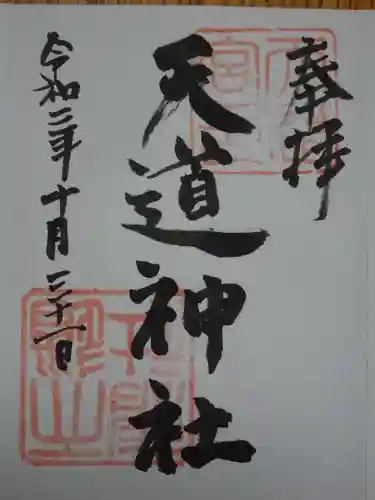 奉拝
天道神社
令和二年十月三十一日